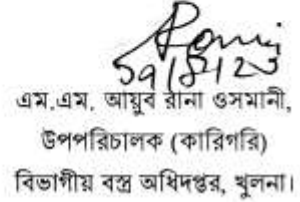 এম.এম. আয়ুব রানা ওসমানী,
উপপরিচালক (কারিগরি)
বিভাগীয় বস্ত্র অধিদপ্তর, খুলনা।